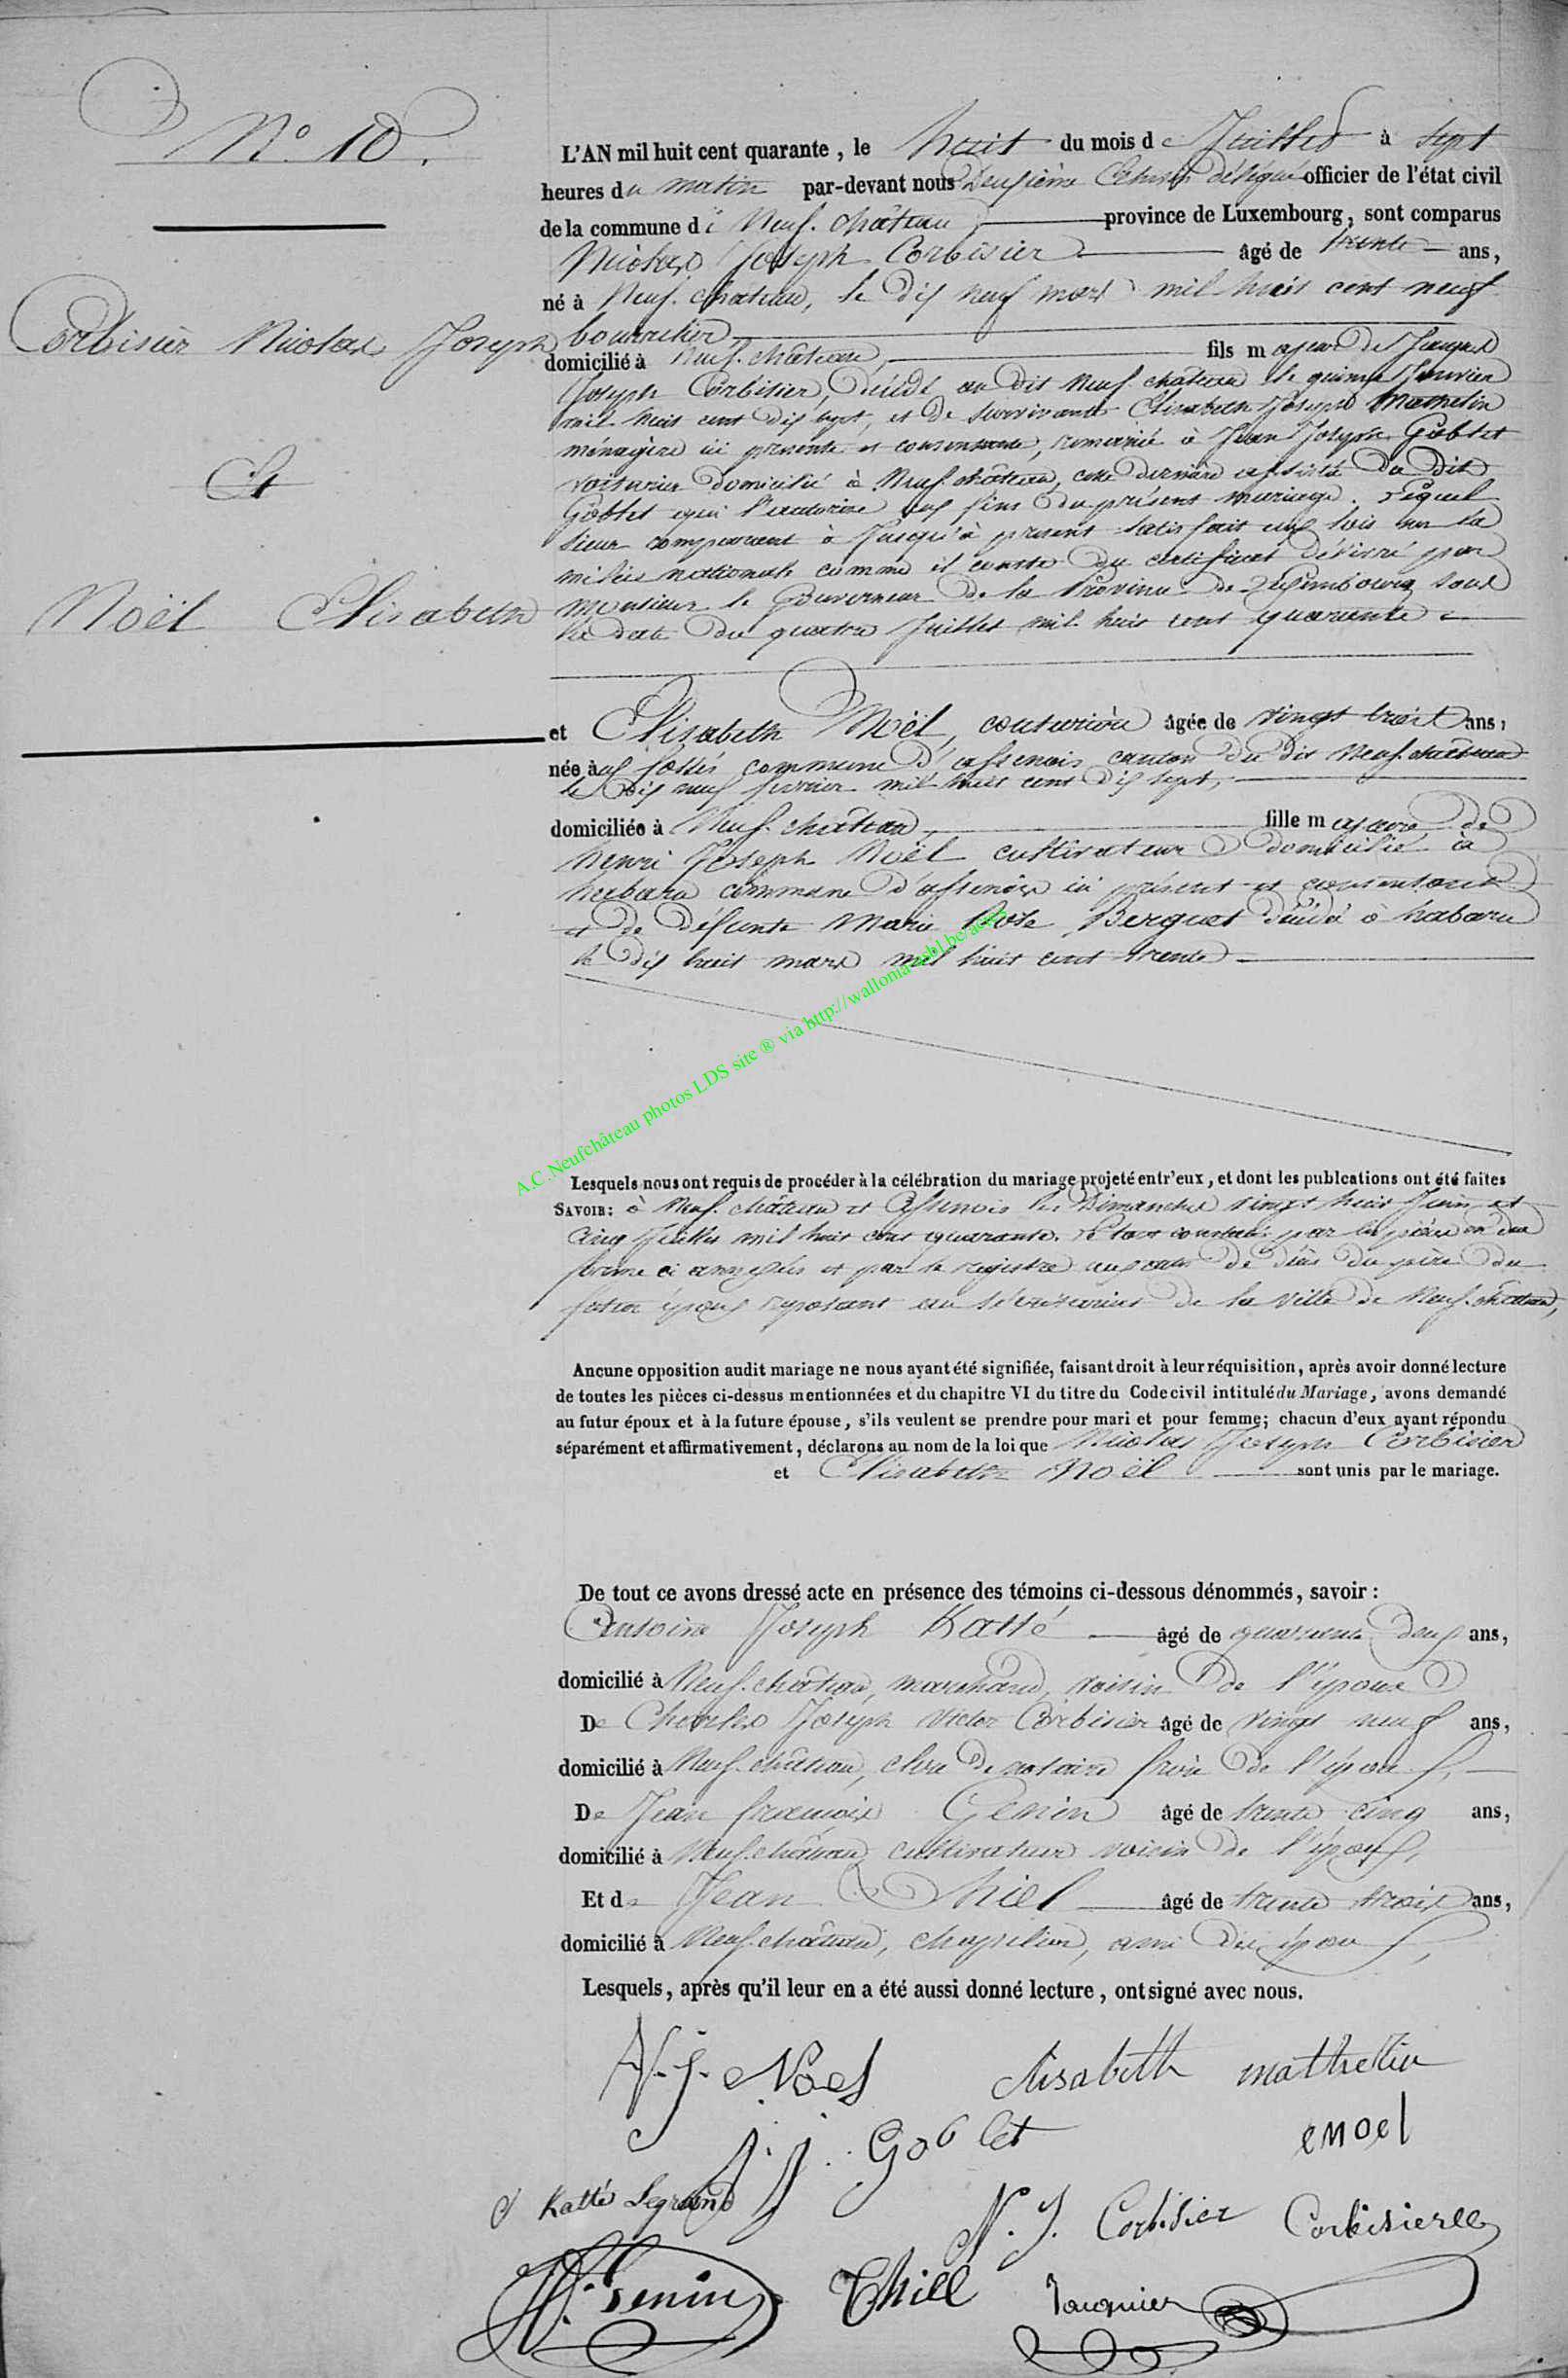 N° 10.
Corbisier Nicolas Joseph
Et
Noël Elisabeth
L'AN mil huit cent quarante, le huit du mois de Juillet à sept
heures du matin par-devant nous Deuxième Echevin délégué officier de l'état civil
de la commune de Neuf-château province de Luxembourg, sont comparus
Nicolas Joseph Corbisier âgé de trente ans,
né à Neuf-château, le dix neuf mars mil huit cent neuf
bourrelier
domicilié à Neuf-château, fils majeur de Jacques
Joseph Corbisier, décédé au dit Neuf château le quinze Janvier
mil huit cent dix sept, et de survivante Elisabeth Joseph Mathelin
ménagère ici présente et consentante, remariée à Jean Joseph Goblet
voiturier domicilié à Neuf-château, cette dernière assistée du dit
Goblet qui l'autorise aux fins du présent mariage. Lequel
sieur comparant a jusqu'à présent satisfait aux lois sur la
milice nationale comme il conste du certificat délivré par
Monsieur le Gouverneur de la Province de Luxembourg sous
la date du quatre Juillet mil huit cent quarante
et Elisabeth Noël, couturière âgée de vingt trois ans,
née aux fossés commune d'assenois canton du dit Neuf-château
le dix neuf février mil huit cent dix sept,
domiciliée à Neuf-château, fille majeure de
henri Joseph Noël cultivateur domicilié à
habaru commune d'assenois ici présent et consentant
et de défunte Marie Rose Berguet décédée à habaru
le dix huit mars mil huit cent trente
A.C.Neufchâteau photos LDS site ® via http://wallonia.
Lesquels nous ont requis de procéder à la célébration du mariage projeté entr'eux, et dont les publcations ont été faites
SAVOIR: à Neuf-château et Assenois les Dimanches vingt huit Juin et
Cinq Juillet mil huit cent quarante. Le tout constaté par les pièces en due
forme ci annexées et par le registre aux actes de décès du père du
futur époux reposant au secrétariat de la ville de Neuf-château,
Aucune opposition audit mariage ne nous ayant été signifiée, faisant droit à leur réquisition, après avoir donné lecture
de toutes les pièces ci-dessus mentionnées et du chapitre VI du titre du Code civil intitulé du Mariage, avons demandé
au futur époux et à la future épouse, s'ils veulent se prendre pour mari et pour femme; chacun d'eux ayant répondu
séparément et affirmativement, déclarons au nom de la loi que Nicolas Joseph Corbisier
et Elisabeth Noël sont unis par le mariage.
De tout ce avons dressé acte en présence des témoins ci-dessous dénommés, savoir:
Antoine Joseph Katté âgé de quarante deux ans,
domicilié à Neuf-château, marchand, voisin de l'épouse
De Charles Joseph Victor Corbisier âgé de vingt neuf ans,
domicilié à Neuf-château, clerc de notaire frère de l'époux,
De Jean françois Génin âgé de trente cinq ans,
domicilié à Neuf-château cultivateur voisin de l'époux,
Et de Jean Thiel âgé de trente trois ans,
domicilié à Neuf-château, chapelier, ami de époux,
Lesquels, après qu'il leur en a été aussi donné lecture, ont signé avec nous.
H.-J. Noel elisabeth mathelin
J. J. Goblet enoel
Katté Legrand
N. J. Corbisier Corbisier
Genin Thiel